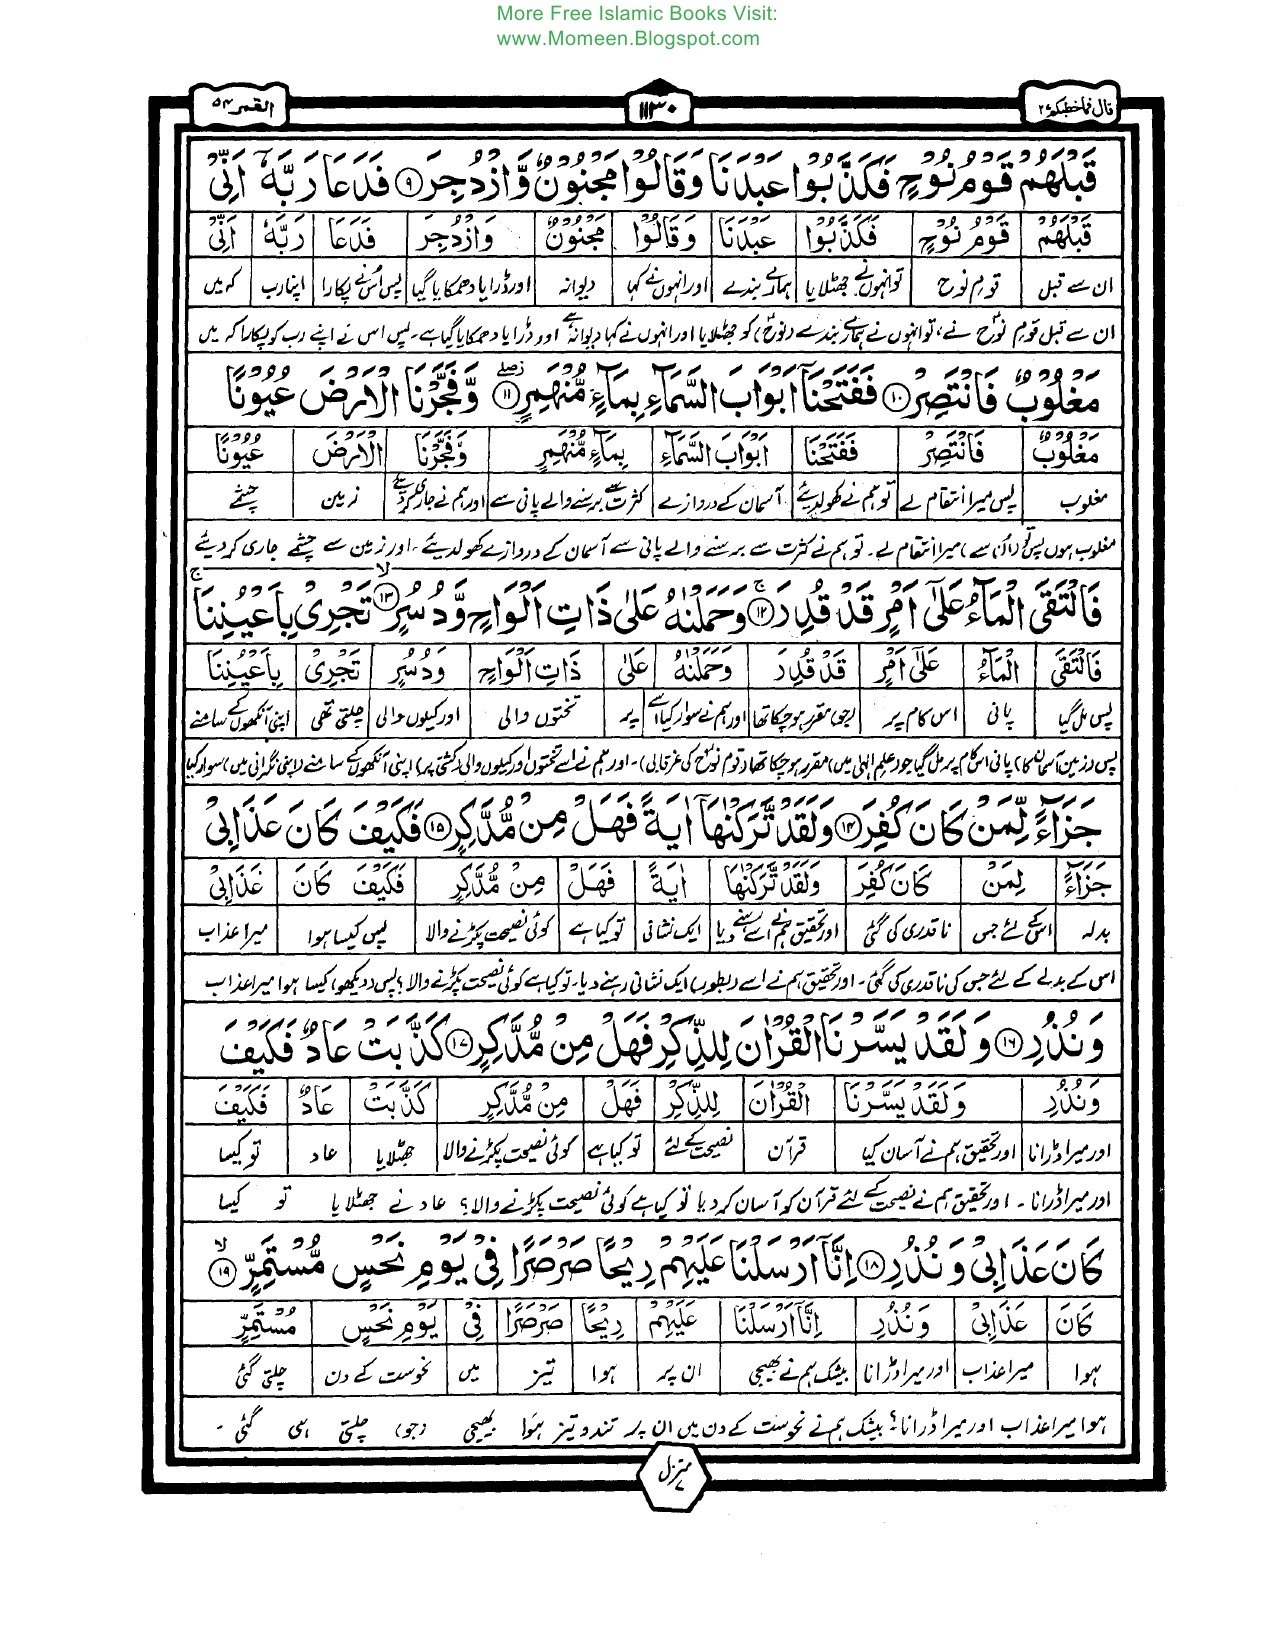 More Free Islamic Books Visit:
www.Momeen.Blogspot.com
قال فما خطبكم ٢٧
١١٣٠
القمر ٥٤
قَبْلَهُمْ قَوْمُ نُوْحٍ فَكَذَّبُوْا عَبْدَنَا وَقَالُوْا مَجْنُوْنٌ وَّازْدُجِرَ ۝٩ فَدَعَا رَبَّهٗٓ اَنِّىْ
قَبْلَهُمْ قَوْمُ نُوْحٍ فَكَذَّبُوْا عَبْدَنَا وَقَالُوْا مَجْنُوْنٌ وَازْدُجِرَ فَدَعَا رَبَّهٗ اَنِّىْ
ان سے قبل قومِ نوح تو انہوں نے جھٹلایا ہمارے بندے اور انہوں نے کہا دیوانہ اور ڈرایا دھمکایا گیا پس اس نے پکارا اپنا رب کہ میں
ان سے قبل قومِ نوحؑ نے، تو انہوں نے ہمارے بندے (نوحؑ) کو جھٹلایا اور انہوں نے کہا دیوانہ ہے اور ڈرایا دھمکایا گیا ہے۔ پس اس نے اپنے رب کو پکارا کہ میں
مَغْلُوْبٌ فَانْتَصِرْ ۝١٠ فَفَتَحْنَآ اَبْوَابَ السَّمَآءِ بِمَآءٍ مُّنْهَمِرٍ ۝١١ وَّفَجَّرْنَا الْاَرْضَ عُيُوْنًا
مَغْلُوْبٌ فَانْتَصِرْ فَفَتَحْنَا اَبْوَابَ السَّمَآءِ بِمَآءٍ مُّنْهَمِرٍ وَّفَجَّرْنَا الْاَرْضَ عُيُوْنًا
مغلوب پس میرا انتقام لے تو ہم نے کھول دیئے آسمان کے دروازے کثرت سے برسنے والے پانی سے اور ہم نے جاری کر دیئے زمین چشمے
مغلوب ہوں پس تو (ان سے) میرا انتقام لے۔ تو ہم نے کثرت سے برسنے والے پانی سے آسمان کے دروازے کھول دیئے۔ اور زمین سے چشمے جاری کر دیئے
فَالْتَقَى الْمَآءُ عَلٰٓى اَمْرٍ قَدْ قُدِرَ ۝١٢ وَحَمَلْنٰهُ عَلٰى ذَاتِ اَلْوَاحٍ وَّدُسُرٍ ۝١٣ تَجْرِىْ بِاَعْيُنِنَا
فَالْتَقَى الْمَآءُ عَلٰٓى اَمْرٍ قَدْ قُدِرَ وَحَمَلْنٰهُ عَلٰى ذَاتِ اَلْوَاحٍ وَدُسُرٍ تَجْرِىْ بِاَعْيُنِنَا
پس مل گیا پانی اس کام پر (جو) مقرر ہو چکا تھا اور ہم نے سوار کیا اسے پر تختوں والی اور کیلوں والی چلتی تھی اپنی آنکھوں کے سامنے
پس (زمین آسمان کا) پانی اس کام پر مل گیا جو (علم الٰہی میں) مقرر ہو چکا تھا (قوم نوحؑ کی غرقابی)۔ اور ہم نے اسے تختوں اور کیلوں والی (کشتی پر) اپنی آنکھوں کے سامنے (اپنی نگرانی میں) سوار کیا
جَزَآءً لِّمَنْ كَانَ كُفِرَ ۝١٤ وَلَقَدْ تَّرَكْنٰهَآ اٰيَةً فَهَلْ مِنْ مُّدَّكِرٍ ۝١٥ فَكَيْفَ كَانَ عَذَابِىْ
جَزَآءً لِّمَنْ كَانَ كُفِرَ وَلَقَدْ تَّرَكْنٰهَا اٰيَةً فَهَلْ مِنْ مُّدَّكِرٍ فَكَيْفَ كَانَ عَذَابِىْ
بدلہ اس کے لئے جس ناقدری کی گئی اور تحقیق ہم نے اسے رہنے دیا ایک نشانی تو کیا ہے کوئی نصیحت پکڑنے والا پس کیسا ہوا میرا عذاب
اس کے بدلے کے لئے جس کی ناقدری کی گئی۔ اور تحقیق ہم نے اسے (بطور) ایک نشانی رہنے دیا۔ تو کیا ہے کوئی نصیحت پکڑنے والا؟ پس (دیکھو) کیسا ہوا میرا عذاب
وَنُذُرِ ۝١٦ وَلَقَدْ يَسَّرْنَا الْقُرْاٰنَ لِلذِّكْرِ فَهَلْ مِنْ مُّدَّكِرٍ ۝١٧ كَذَّبَتْ عَادٌ فَكَيْفَ
وَنُذُرِ وَلَقَدْ يَسَّرْنَا الْقُرْاٰنَ لِلذِّكْرِ فَهَلْ مِنْ مُّدَّكِرٍ كَذَّبَتْ عَادٌ فَكَيْفَ
اور میرا ڈرانا اور تحقیق ہم نے آسان کیا قرآن نصیحت کے لئے تو کیا ہے کوئی نصیحت پکڑنے والا جھٹلایا عاد تو کیسا
اور میرا ڈرانا۔ اور تحقیق ہم نے نصیحت کے لئے قرآن کو آسان کر دیا تو کیا ہے کوئی نصیحت پکڑنے والا؟ عاد نے جھٹلایا تو کیسا
كَانَ عَذَابِىْ وَنُذُرِ ۝١٨ اِنَّآ اَرْسَلْنَا عَلَيْهِمْ رِيْحًا صَرْصَرًا فِىْ يَوْمِ نَحْسٍ مُّسْتَمِرٍّ ۝١٩
كَانَ عَذَابِىْ وَنُذُرِ اِنَّآ اَرْسَلْنَا عَلَيْهِمْ رِيْحًا صَرْصَرًا فِىْ يَوْمِ نَحْسٍ مُسْتَمِرٍّ
ہوا میرا عذاب اور میرا ڈرانا بیشک ہم نے بھیجی ان پر ہوا تیز میں نحوست کے دن چلتی گئی
ہوا میرا عذاب اور میرا ڈرانا؟ بیشک ہم نے نحوست کے دن میں ان پر تند و تیز ہوا بھیجی (جو) چلتی ہی گئی۔
منزل ٧